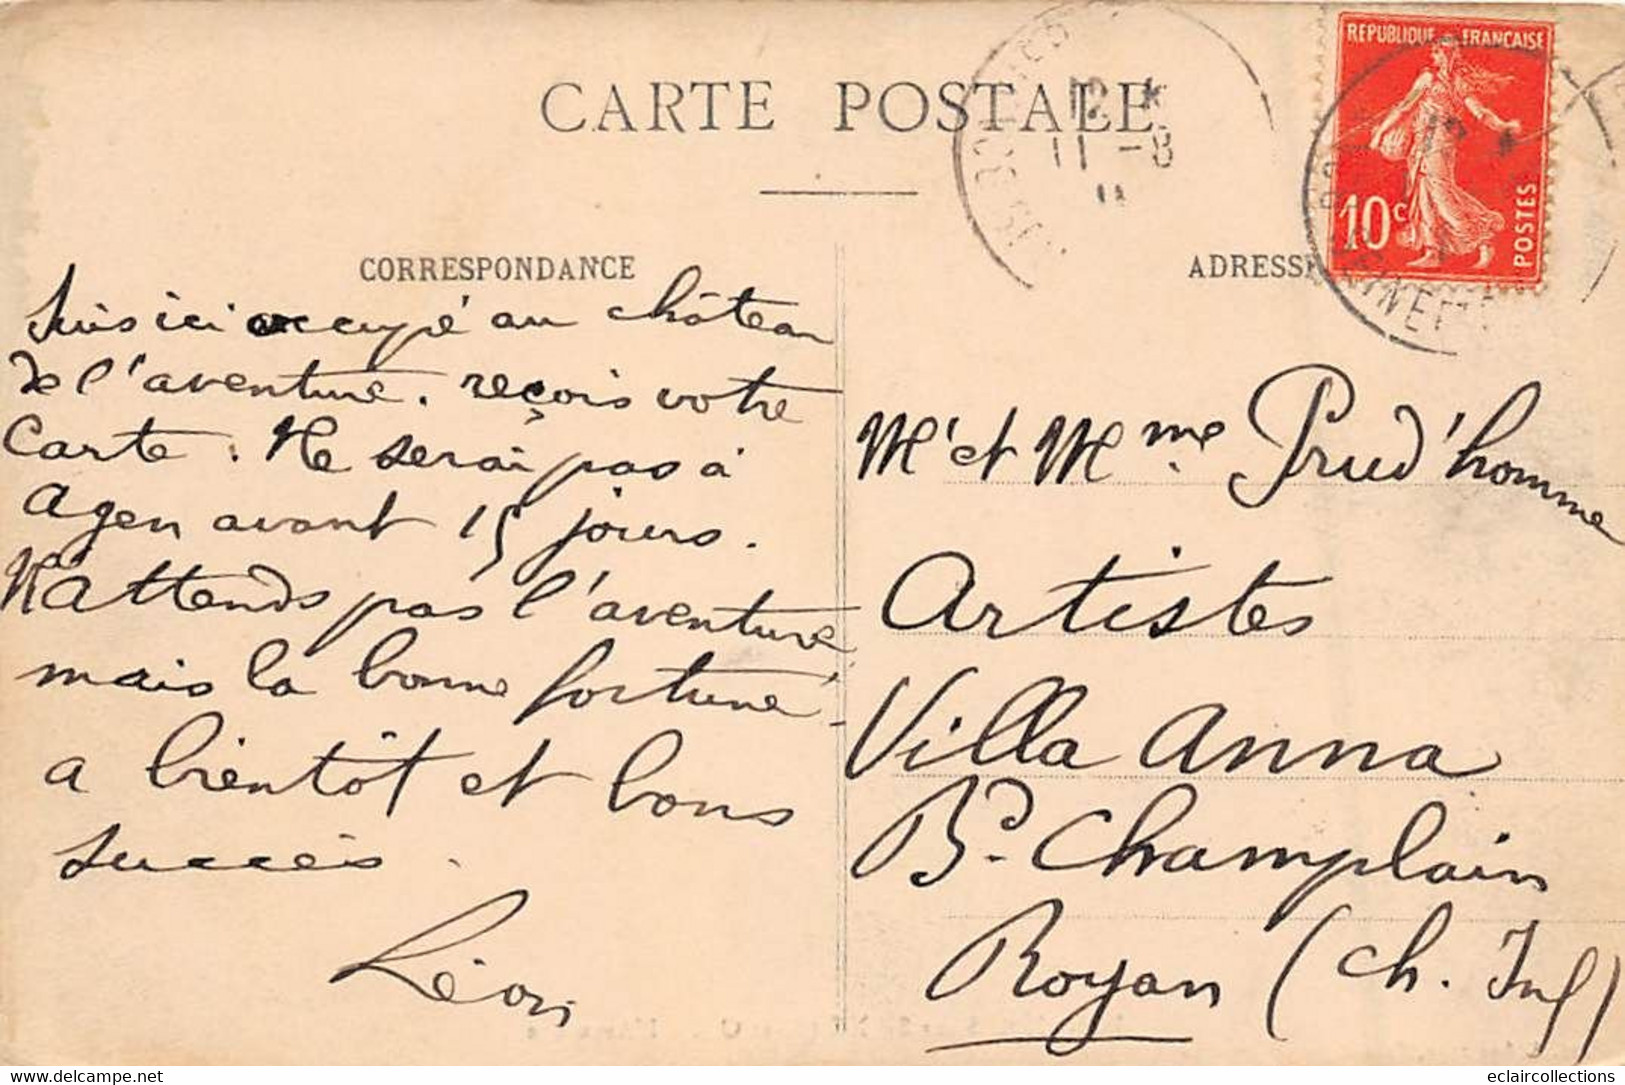 CARTE POSTALE
12 *
11 - 8
11
REPUBLIQUE FRANÇAISE
10c
POSTES
CORRESPONDANCE
Suis ici occupé au château
de l'aventure. reçois votre
Carte. Ne serai pas à
Agen avant 15 jours.
N'attends pas l'aventure
mais la bonne fortune
a bientôt et bons
succès.
Léon
ADRESSE
Mr et Mme Prud'homme
Artistes
Villa Anna
Bd. Champlain
Royan (Ch. Inf)
eclaircollections
www.delcampe.net